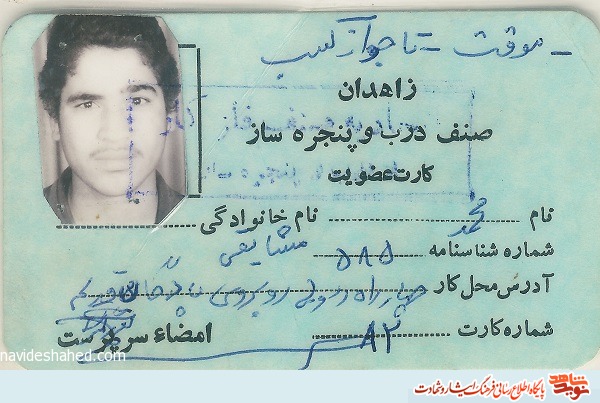 موقت - تا جواز کسب
زاهدان
صنف درب و پنجره ساز
کارت عضویت
نام محمد نام خانوادگی مشایخی
شماره شناسنامه ۵۸۵
آدرس محل کار چهارراه روبروی
شماره کارت ۸۲ امضاء سرپرست
navideshahed.com
نوید شاهد پایگاه اطلاع رسانی فرهنگ ایثار و شهادت